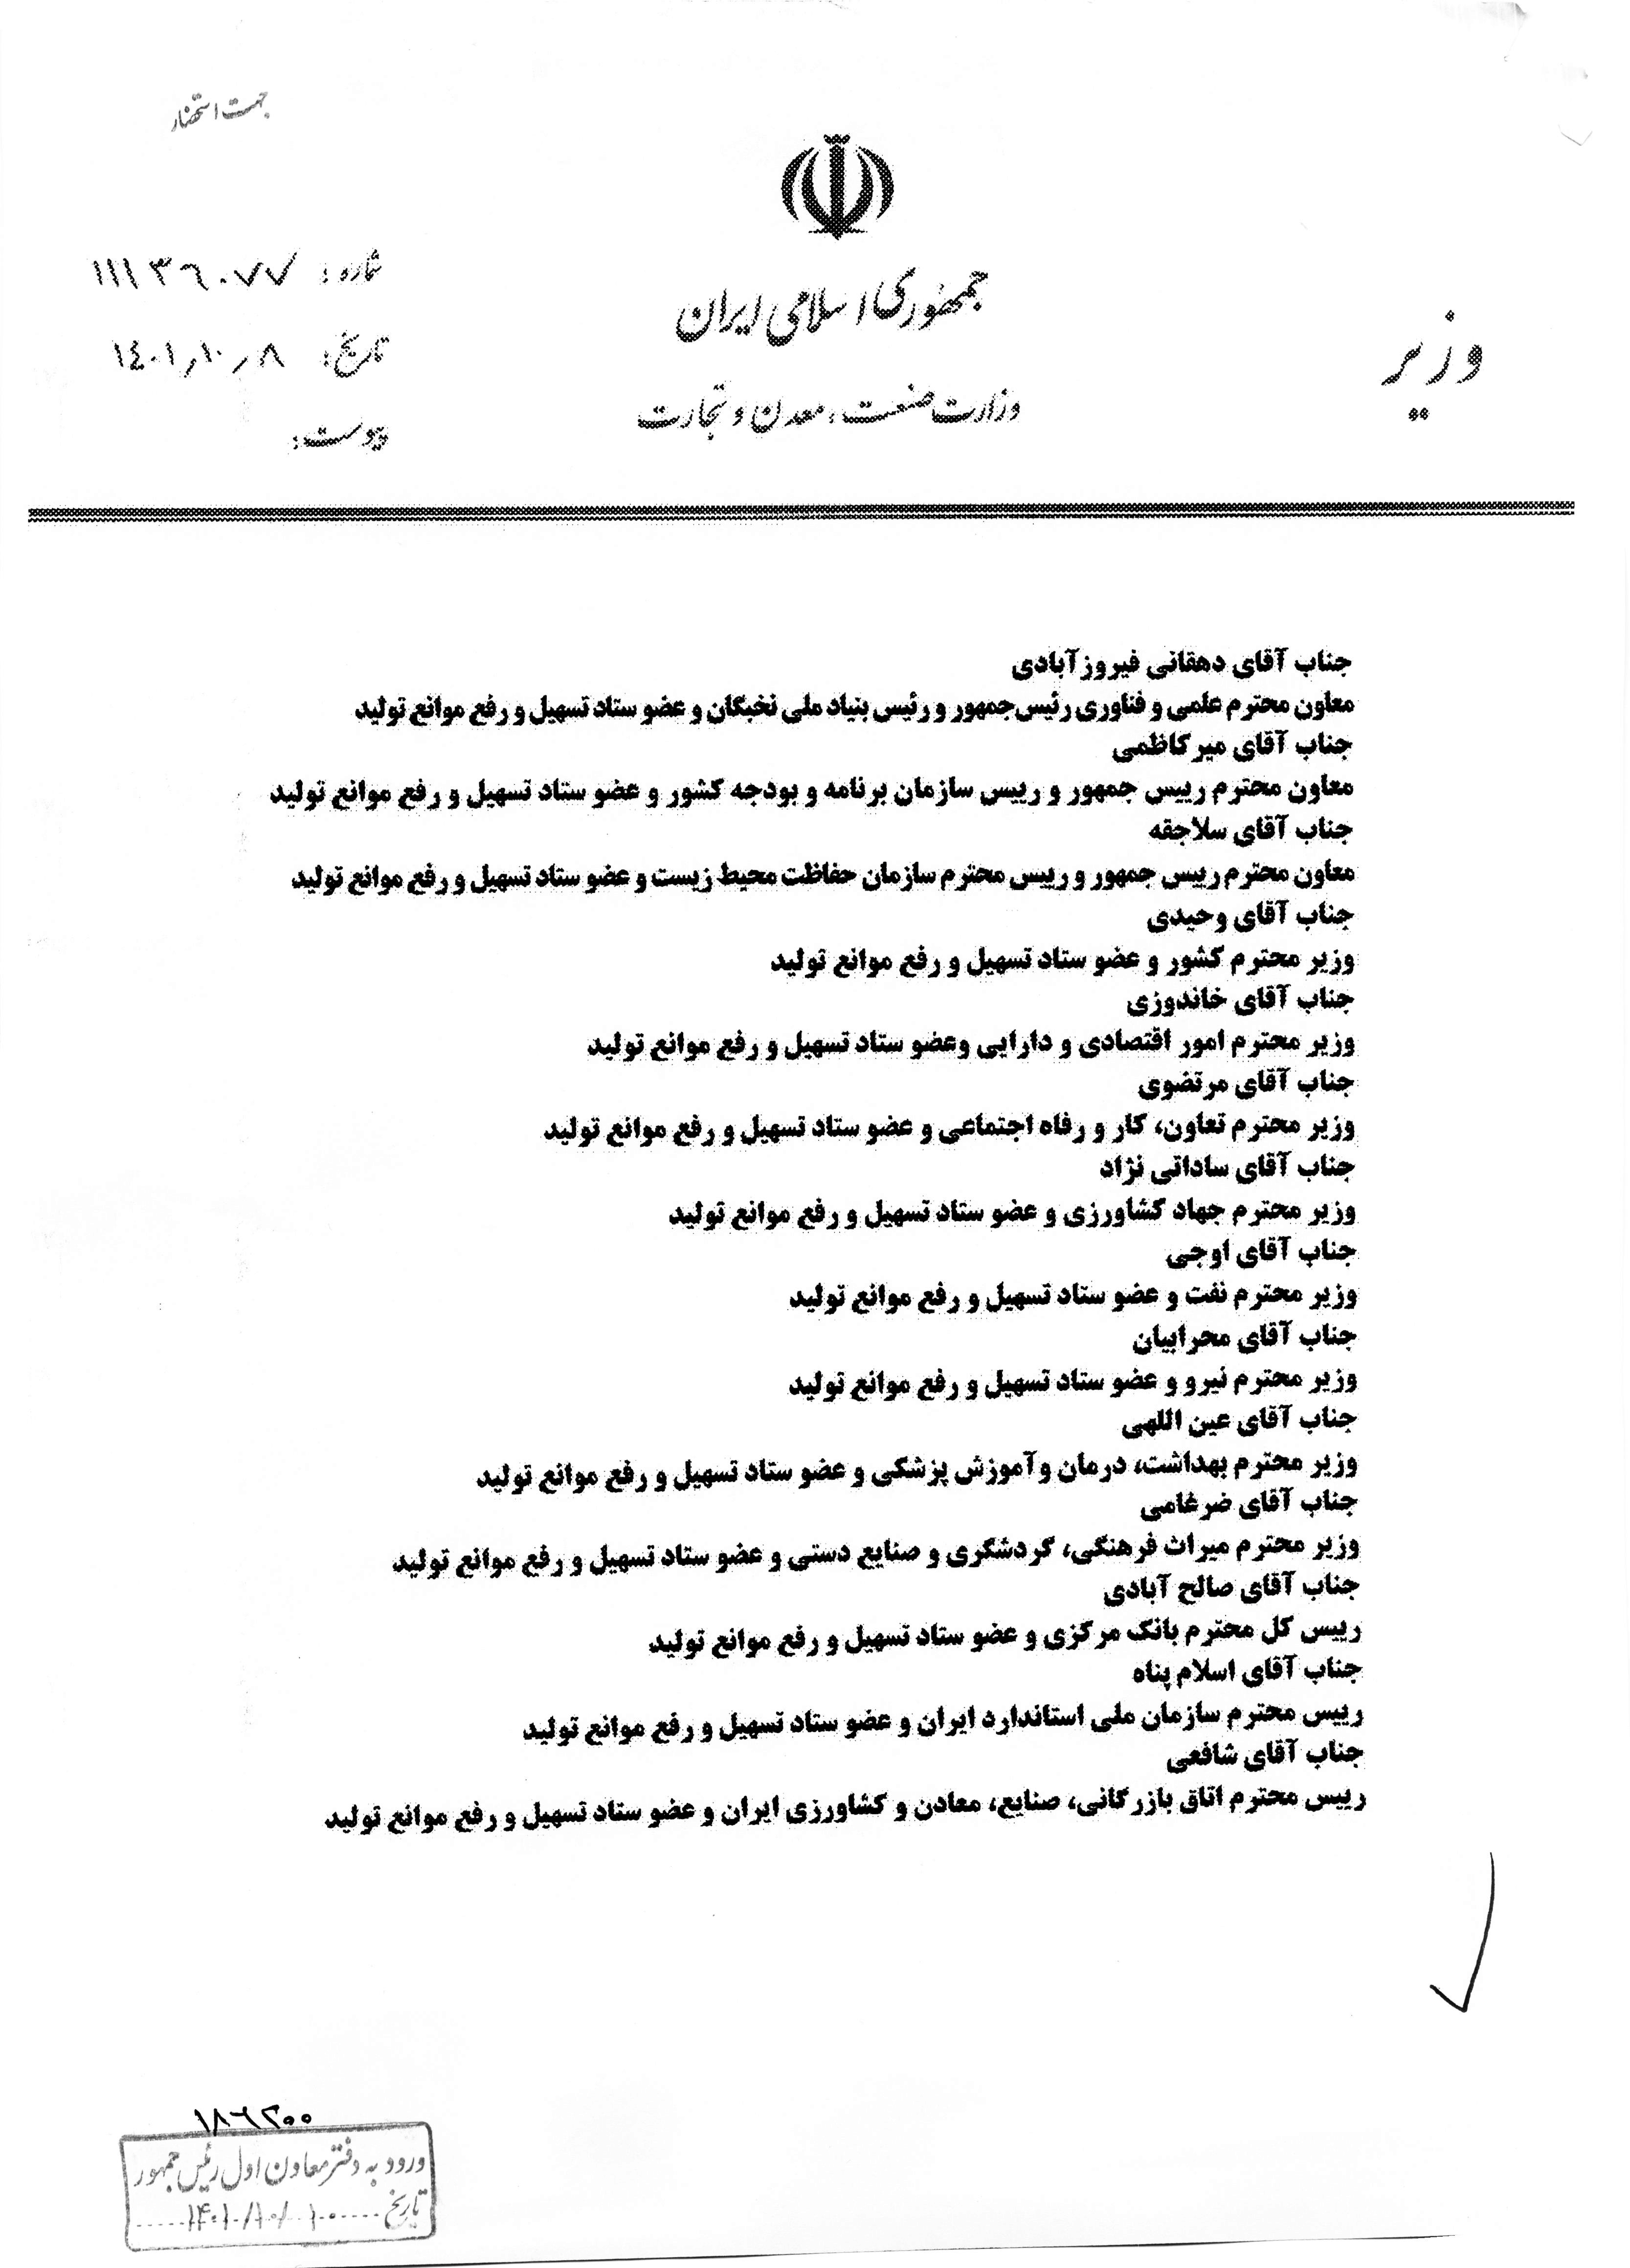 جهت استحضار
جمهوری اسلامی ایران
وزارت صنعت، معدن و تجارت
وزیر
شماره: ۱۱۱۳۶۰۷۷
تاریخ: ۱٤۰۱٫۱۰٫۸
پیوست:
جناب آقای دهقانی فیروزآبادی
معاون محترم علمی و فناوری رئیس‌جمهور و رئیس بنیاد ملی نخبگان و عضو ستاد تسهیل و رفع موانع تولید
جناب آقای میرکاظمی
معاون محترم رییس جمهور و رییس سازمان برنامه و بودجه کشور و عضو ستاد تسهیل و رفع موانع تولید
جناب آقای سلاجقه
معاون محترم رییس جمهور و رییس محترم سازمان حفاظت محیط زیست و عضو ستاد تسهیل و رفع موانع تولید
جناب آقای وحیدی
وزیر محترم کشور و عضو ستاد تسهیل و رفع موانع تولید
جناب آقای خاندوزی
وزیر محترم امور اقتصادی و دارایی وعضو ستاد تسهیل و رفع موانع تولید
جناب آقای مرتضوی
وزیر محترم تعاون، کار و رفاه اجتماعی و عضو ستاد تسهیل و رفع موانع تولید
جناب آقای ساداتی نژاد
وزیر محترم جهاد کشاورزی و عضو ستاد تسهیل و رفع موانع تولید
جناب آقای اوجی
وزیر محترم نفت و عضو ستاد تسهیل و رفع موانع تولید
جناب آقای محرابیان
وزیر محترم نیرو و عضو ستاد تسهیل و رفع موانع تولید
جناب آقای عین اللهی
وزیر محترم بهداشت، درمان وآموزش پزشکی و عضو ستاد تسهیل و رفع موانع تولید
جناب آقای ضرغامی
وزیر محترم میراث فرهنگی، گردشگری و صنایع دستی و عضو ستاد تسهیل و رفع موانع تولید
جناب آقای صالح آبادی
رییس کل محترم بانک مرکزی و عضو ستاد تسهیل و رفع موانع تولید
جناب آقای اسلام پناه
رییس محترم سازمان ملی استاندارد ایران و عضو ستاد تسهیل و رفع موانع تولید
جناب آقای شافعی
رییس محترم اتاق بازرگانی، صنایع، معادن و کشاورزی ایران و عضو ستاد تسهیل و رفع موانع تولید
ورود به دفتر معاون اول رئیس جمهور
تاریخ ۱۴۰۱/۱۰/۱۰